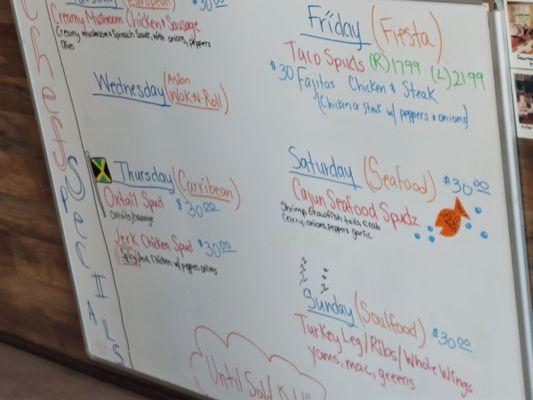 Chef's Specials
Tuesday (European) $30.00
Creamy Mushroom Chicken & Sausage
Creamy mushroom & Spinach Sauce, with onions, peppers
Wednesday (Asian
Wok-N-Roll)
Thursday (Carribean)
Oxtail Spud $30.00
Oxtails/cabbage
Jerk Chicken Spud $30.00
Spicy Jerk Chicken w/ peppers onions
Friday (Fiesta)
Taco Spuds (R) 17.99 (L) 21.99
$30 Fajitas Chicken & Steak
(Chicken or Steak w/ peppers n onions)
Saturday (Seafood) $30.00
Cajun Seafood Spudz
Shrimp, Crawfish tails, crab
Curry, onions, peppers garlic
Sunday (Soulfood) $30.00
Turkey Leg/Ribs/Whole Wings
yams, mac, greens
Until Sold